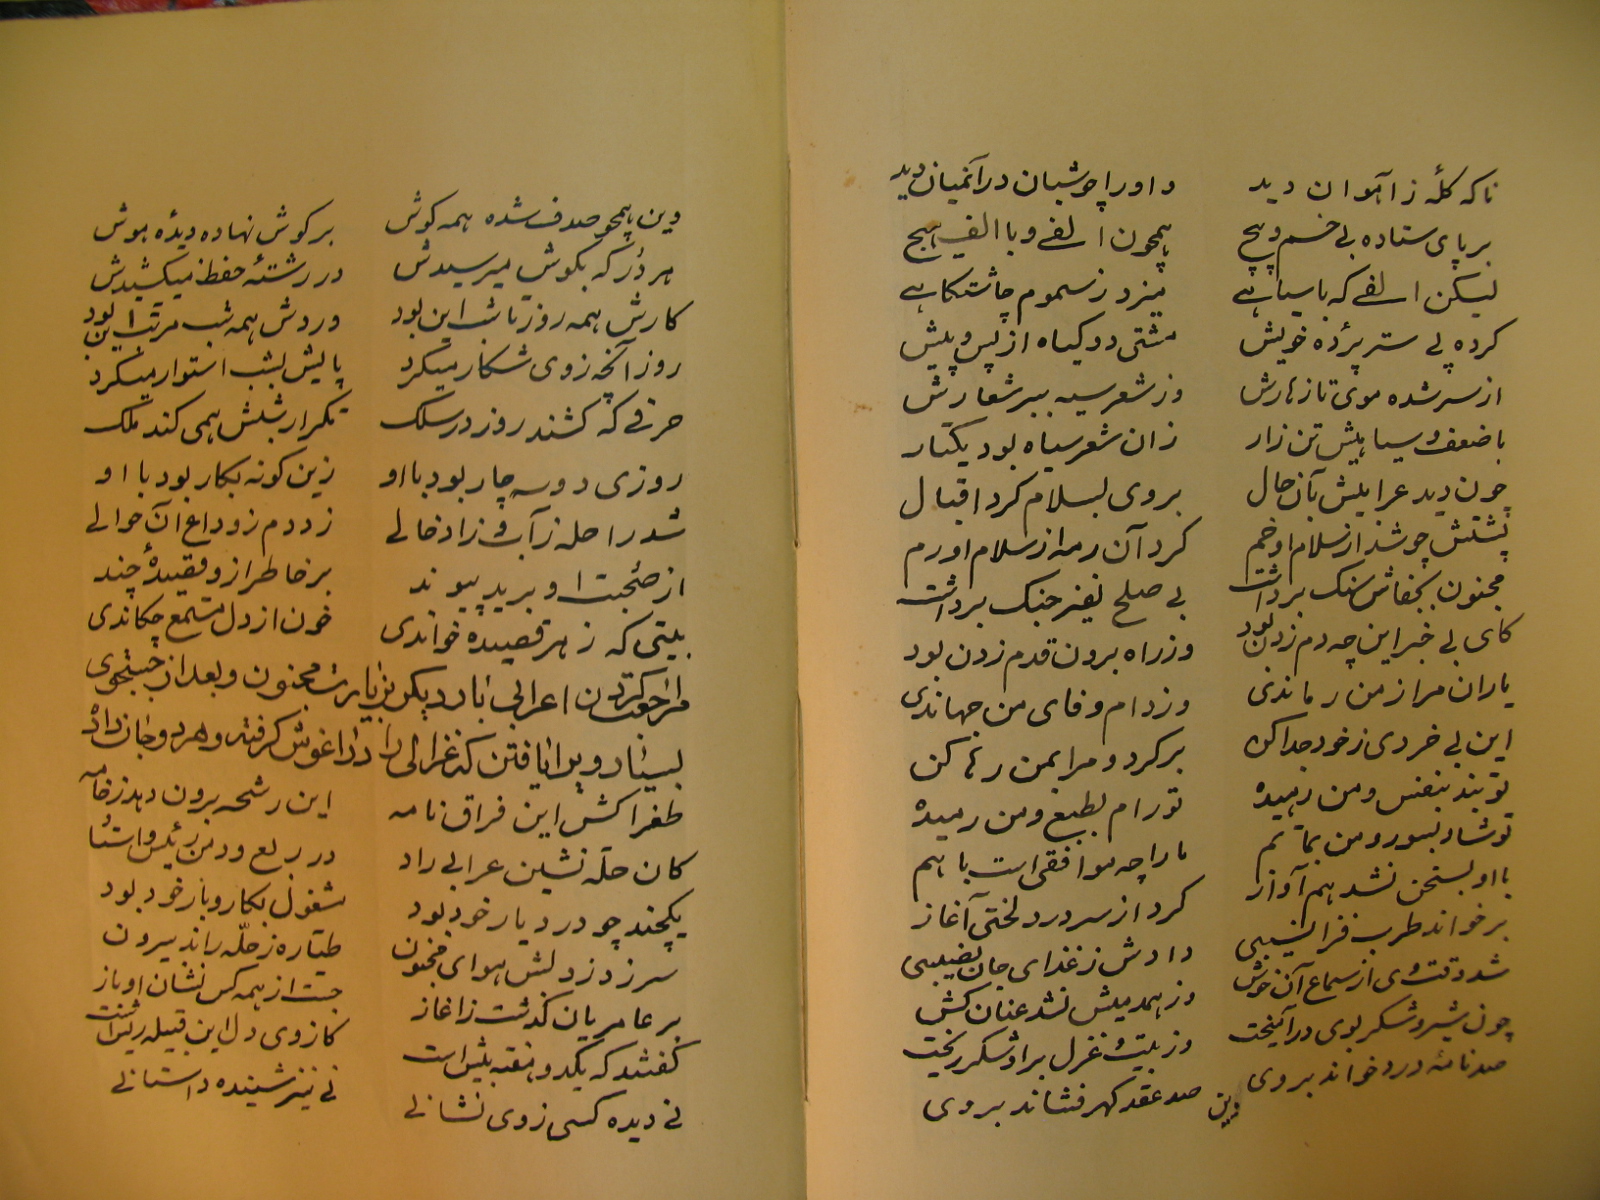 ناکه کلهٔ ز آهوان دید واورا چو شبان در آنمیان دید
برپای ستاده بی خم و پیچ همچون الفی و با الف هیچ
لیکن الفی که با سیاهی میزد ز سموم چاشتکاهی
کرده پی ستر پردهٔ خویش مشتی دو کیاه از پس و پیش
از سر شده موی تازه‌ارش وز شعر سیه ببر شعارش
با ضعف و سیاهیش تن زار زان شعر سیاه بود یکتار
چون دید عرابیش بآن حال بروی بسلام کرد اقبال
پشتش چو شد از سلام او خم کرد آن رمه از سلام او رم
مجنون بجفاش سنک برداشت بی صلح نفیر جنک برداشت
کای بی خبر این چه دم زدن بود وز راه برون قدم زدن بود
یاران مرا ز من رماندی وز دام وفای من جهاندی
این بی خردی ز خود جدا کن برکرد و مرا بمن رها کن
تو بند بنفس و من رهیده تو رام بطبع و من رمیده
تو شاد بسور و من بماتم ما را چه موافقی است با هم
با او بسخن نشد هم آواز کرد از سر درد لختی آغاز
برخواند طرب فزا نسیبی دادش ز غذای جان نصیبی
شد وقت وی از سماع آن خوش وز همدمیش نشد عنان کش
چون شیر و شکر بوی در آمیخت وز بیت و غزل براو شکر ریخت
صد نامهٔ درد خواند بروی صد عقد کهر فشاند بروی
وین
وین همچو صدف شده همه کوش بر کوش نهاده دیدهٔ هوش
هر در که بکوش میرسیدش در رشتهٔ حفظ میکشیدش
کارش همه روز تا شب این بود وردش همه شب مرتب این بود
روز آنچه ز وی شکار میکرد پایش بشب استوار میکرد
حرفی که کشند روز در سلک تکرار شبش همی کند ملک
روزی دو سه چار بود با او زین کونه بکار بود با او
شد راحله ز آب و زاد خالی زد دم ز وداع آن حوالی
از صحبت او برید پیوند بر خاطر از و قصیدهٔ چند
بیتی که ز هر قصیده خواندی خون از دل مستمع چکاندی
مراجعت کردن اعرابی بار دیکر بزیارت مجنون و بعد از جستجوی
بسیار ویرا یافتن که غزالی را در اغوش کرفته و هر دو جان داده
طغرا کش این فراق نامه این رشحه برون دهد ز خامه
کان حله نشین عرابی راد در ربع و دمن رئیس و استاد
یکچند چو در دیار خود بود مشغول بکار و بار خود بود
سر زد ز دلش هوای مجنون طیاره ز حله راند بیرون
بر عامریان کذشت ز اغاز جست از همه کس نشان او باز
کفتند که یکدو هفته بیش است کز وی دل این قبیله ریش است
نی دیده کسی ز وی نشانی نی نیز شنیده داستانی